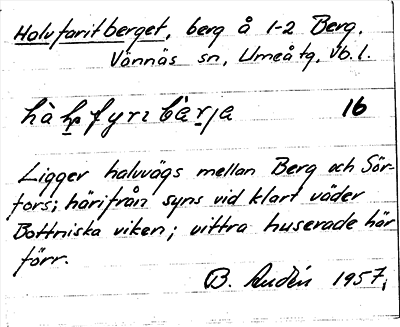 Halvfaritberget, berg å 1-2 Berg,
Vännäs sn, Umeå tg, Vb. l.
16
Ligger halvvägs mellan Berg och Sör-
fors; härifrån syns vid klart väder
Bottniska viken; vittra huserade här
förr.
B. Audén 1957;